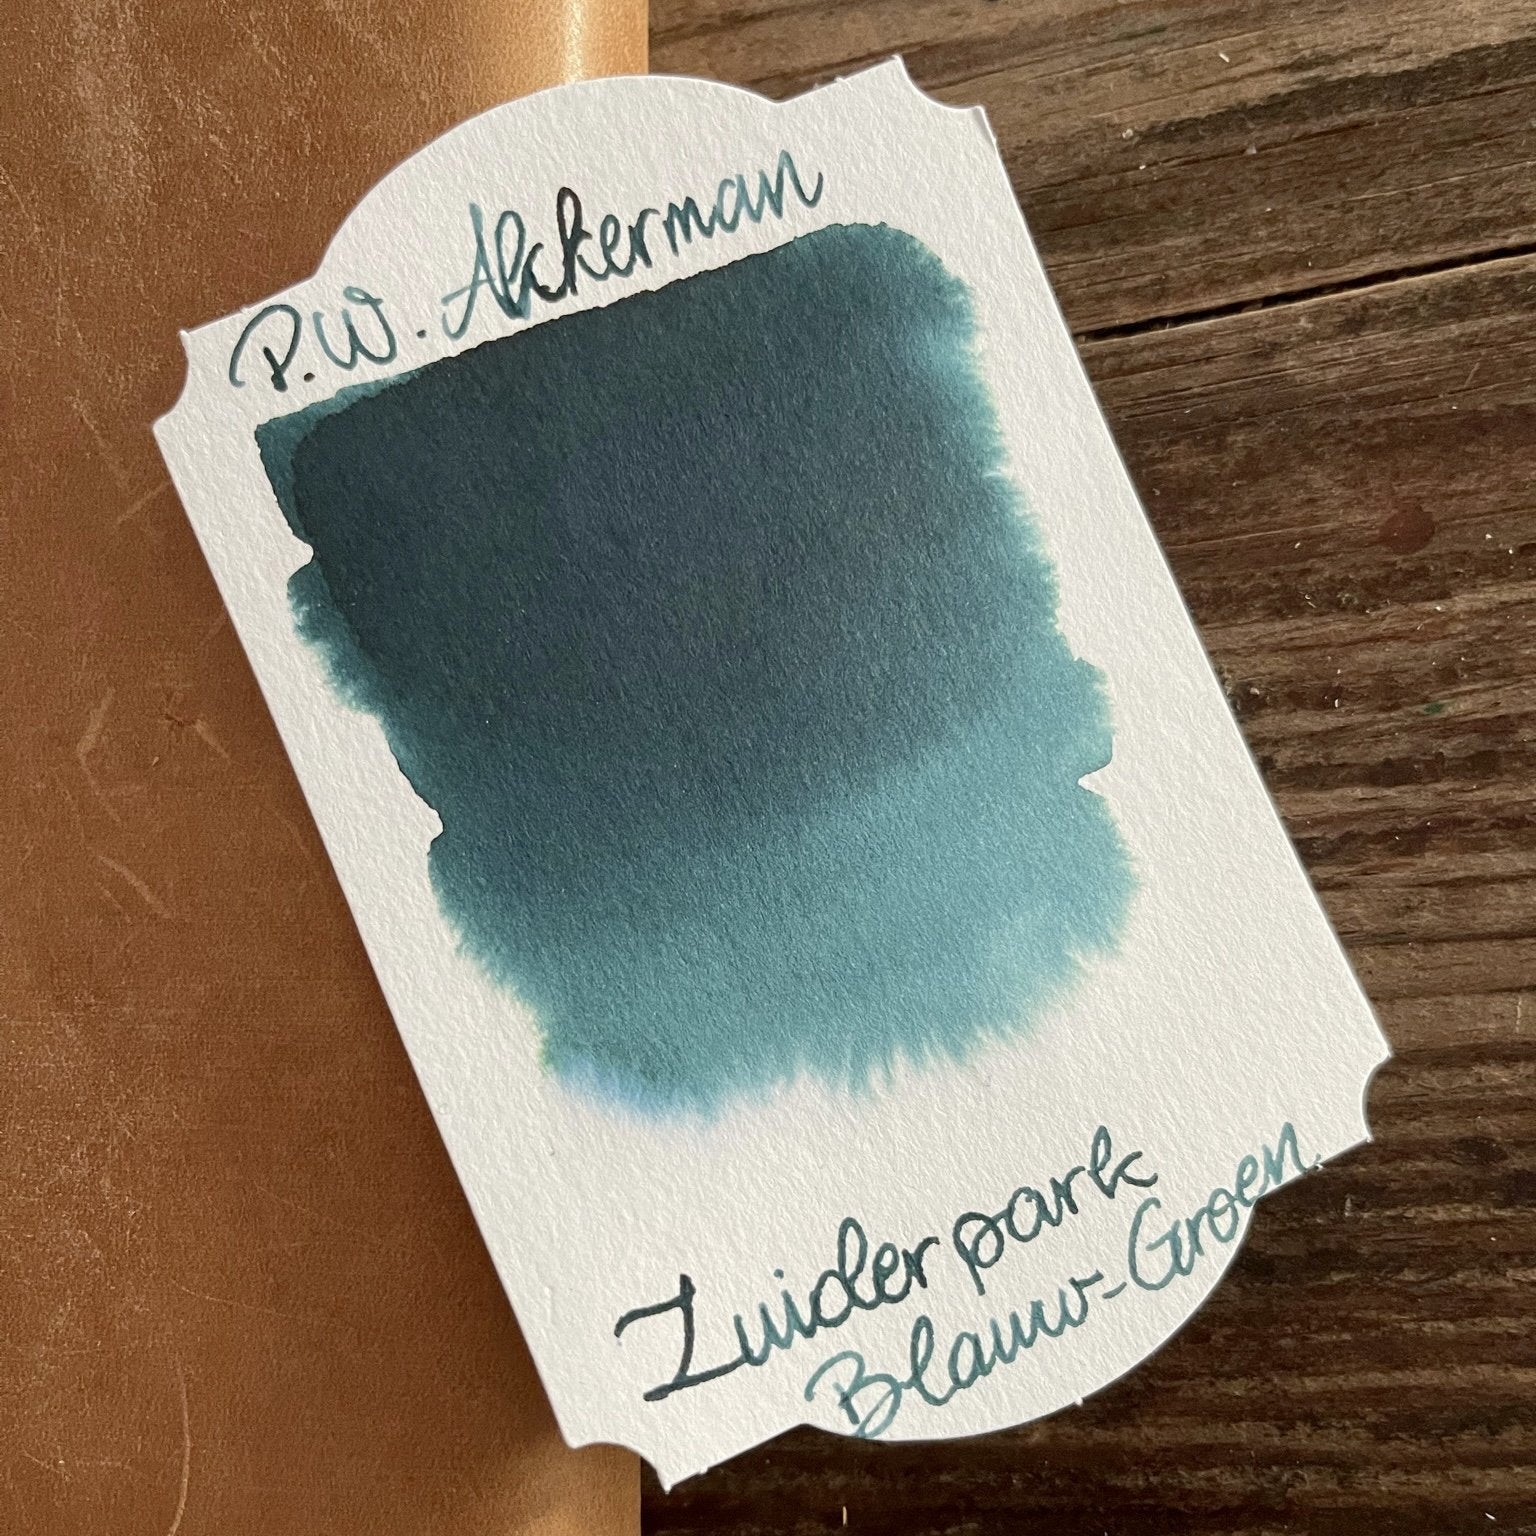 P.W. Akkerman
Zuiderpark
Blauw-Groen